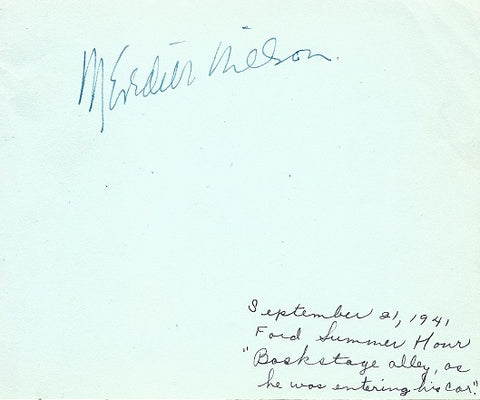 Meredith Willson.
September 21, 1941
Ford Summer Hour
"Backstage alley, as
he was entering his car."